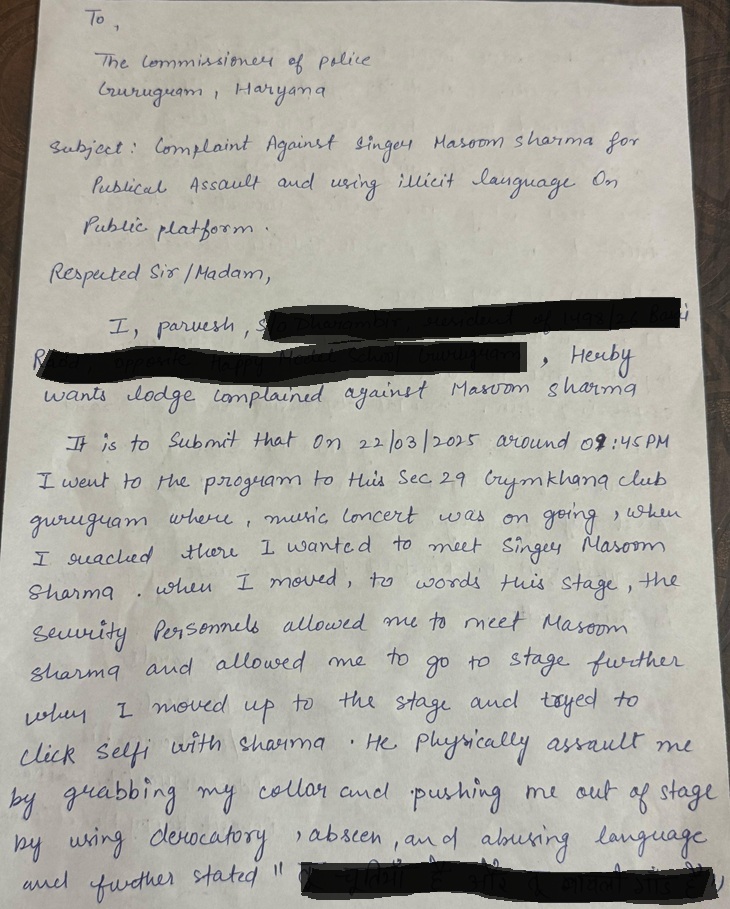 To,
The Commissioner of police
Gurugram, Haryana
Subject: Complaint Against Singer Masoom Sharma for
Publical Assault and using illicit language On
Public platform.
Respected Sir/Madam,
I, parvesh,
, Herby
wants lodge complained against Masoom Sharma
It is to Submit that On 22/03/2025 around 09:45PM
I went to the program to this Sec 29 Gymkhana club
gurugram where, music concert was on going, when
I reached there I wanted to meet Singer Masoom
Sharma. when I moved, to words this stage, the
security Personnels allowed me to meet Masoom
Sharma and allowed me to go to stage further
when I moved up to the stage and tryed to
click Selfi with Sharma. He Physically assault me
by grabbing my collar and pushing me out of stage
by using derocatory, abseen, and abusing language
and further stated "